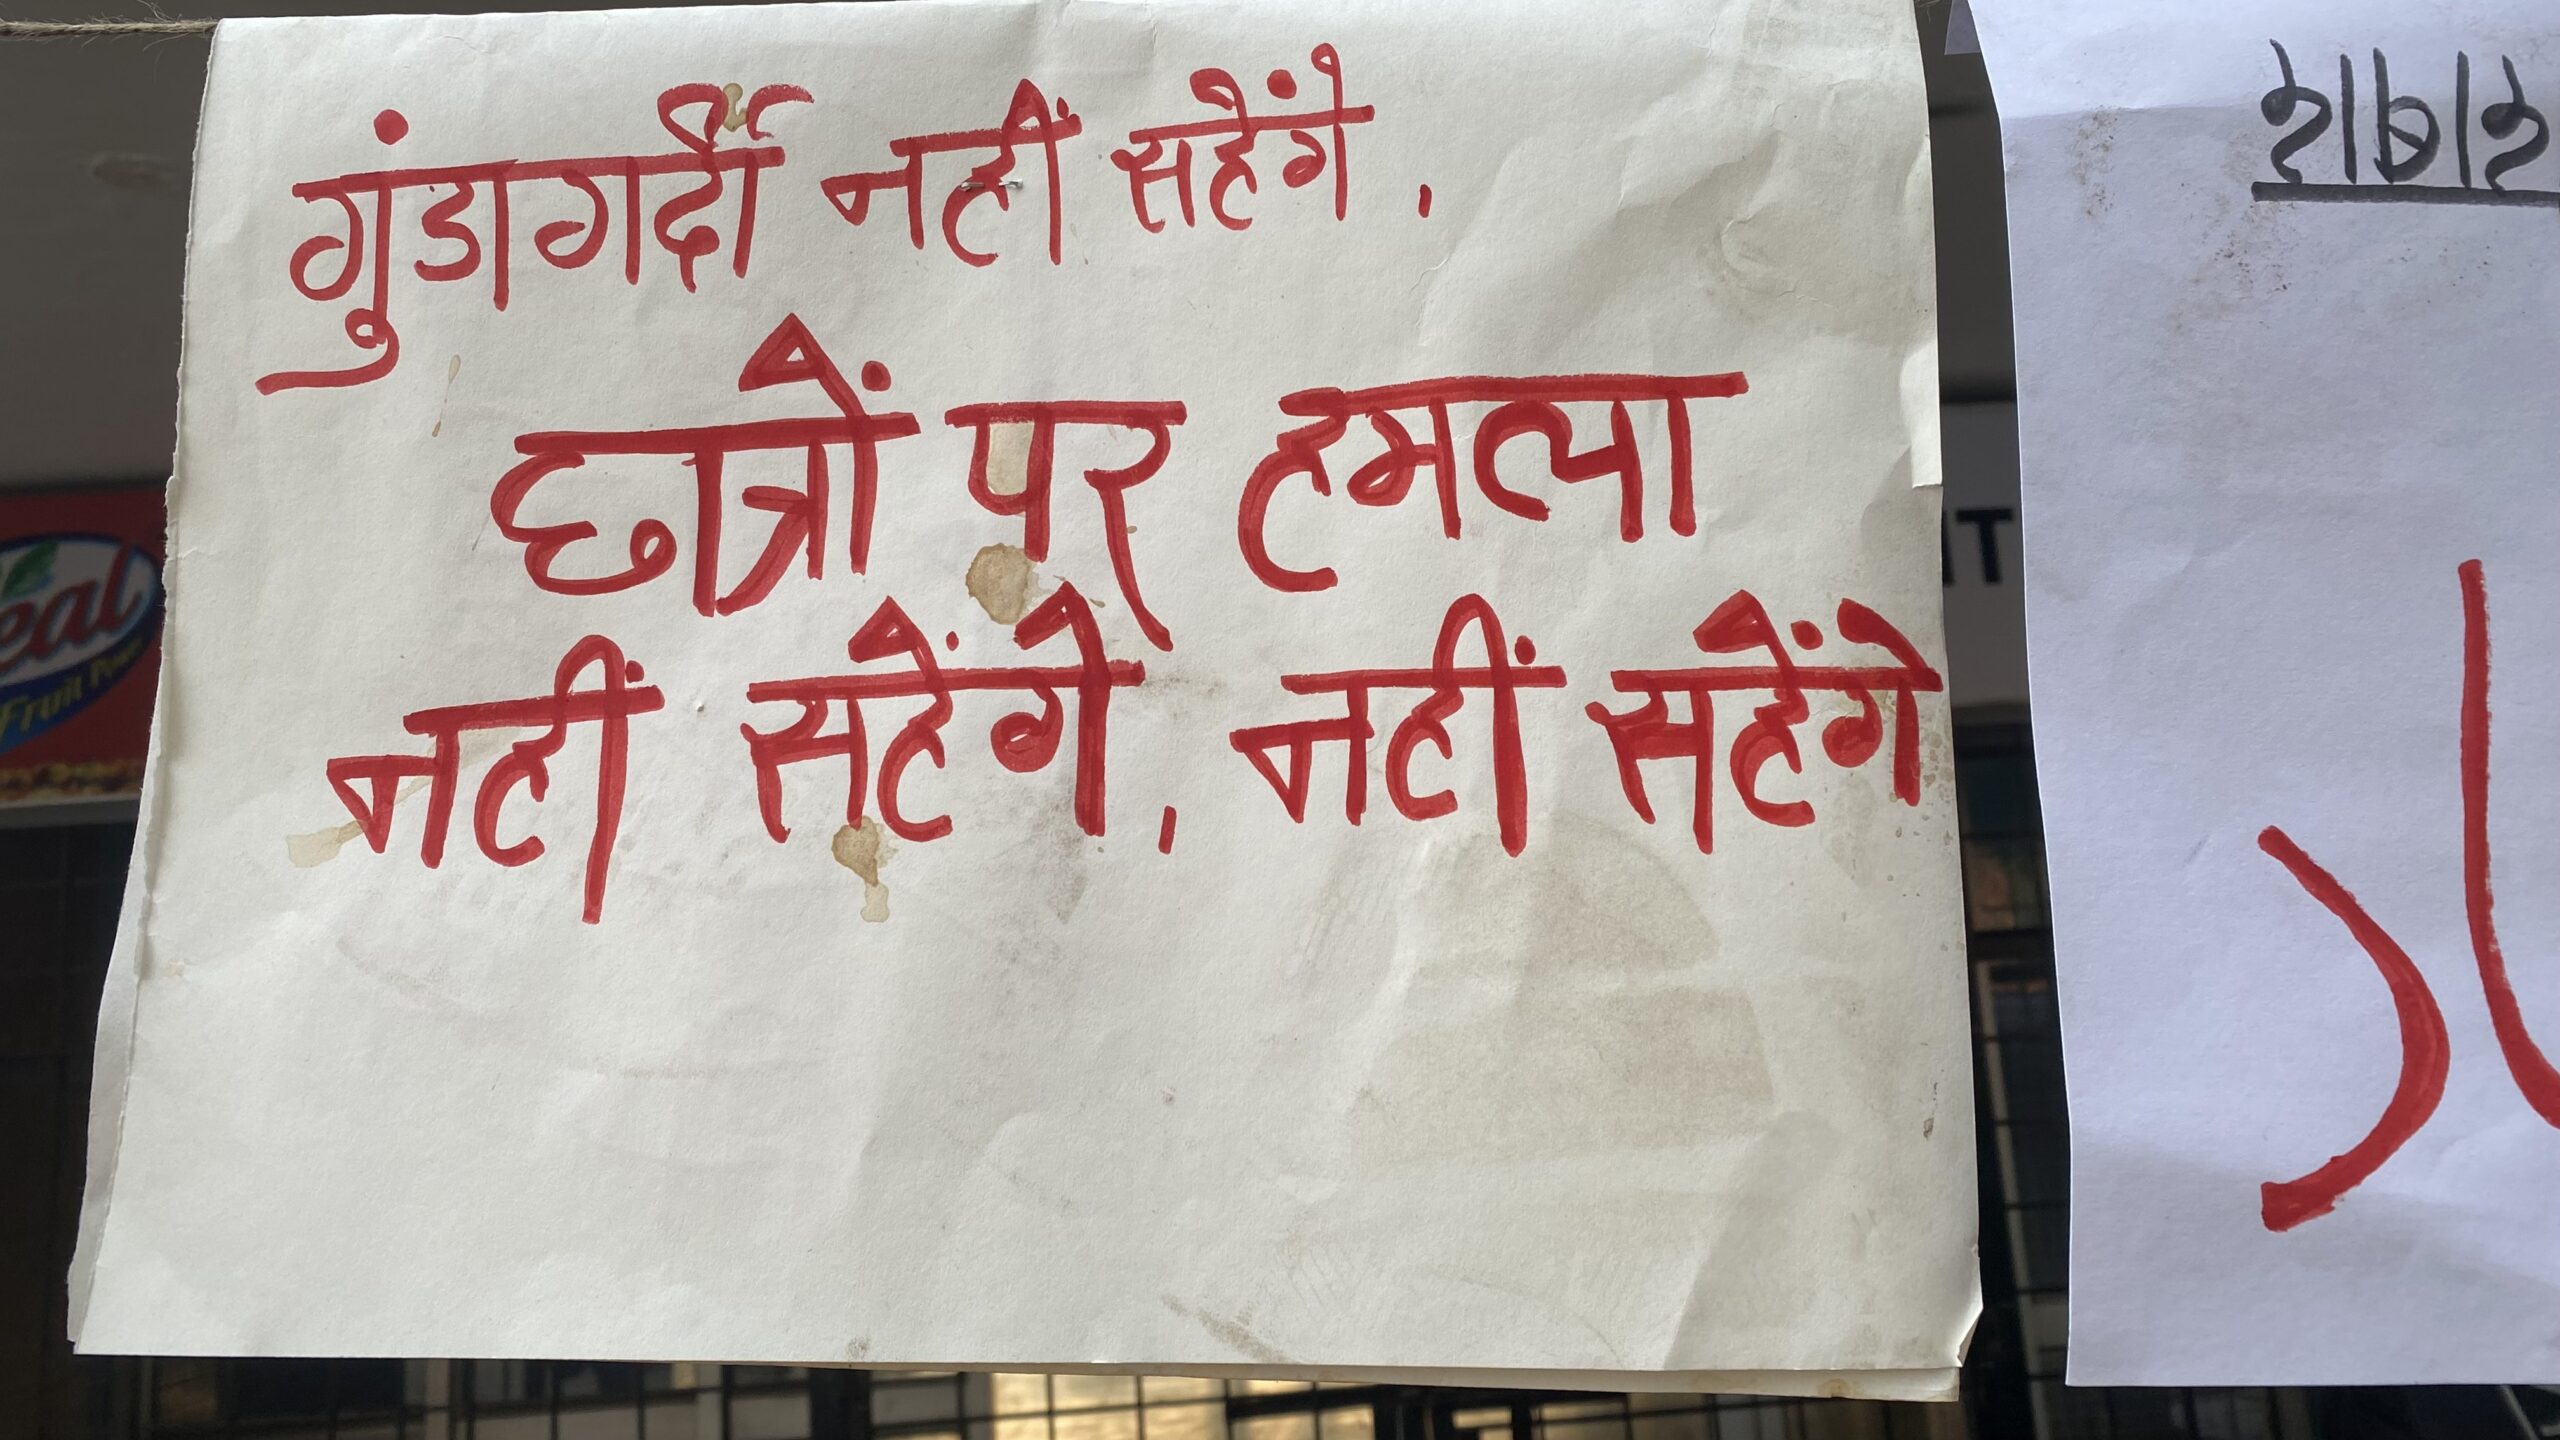 गुंडागर्दी नहीं सहेंगे,
छात्रों पर हमला
नहीं सहेंगे, नहीं सहेंगे
eal
Fruit Power
IT